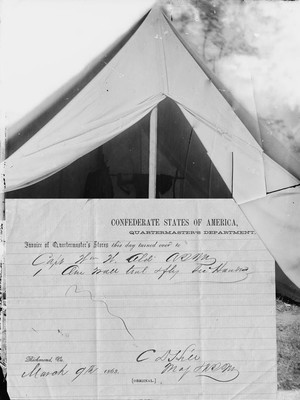 CONFEDERATE STATES OF AMERICA,
QUARTERMASTER'S DEPARTMENT.
Invoice of Quartermaster's Stores this day turned over to
Capt. Wm H. AQM
1 wall tent & fly
Richmond Va
C D Hill
March 9th 186
Maj & QM
[ORIGINAL.]